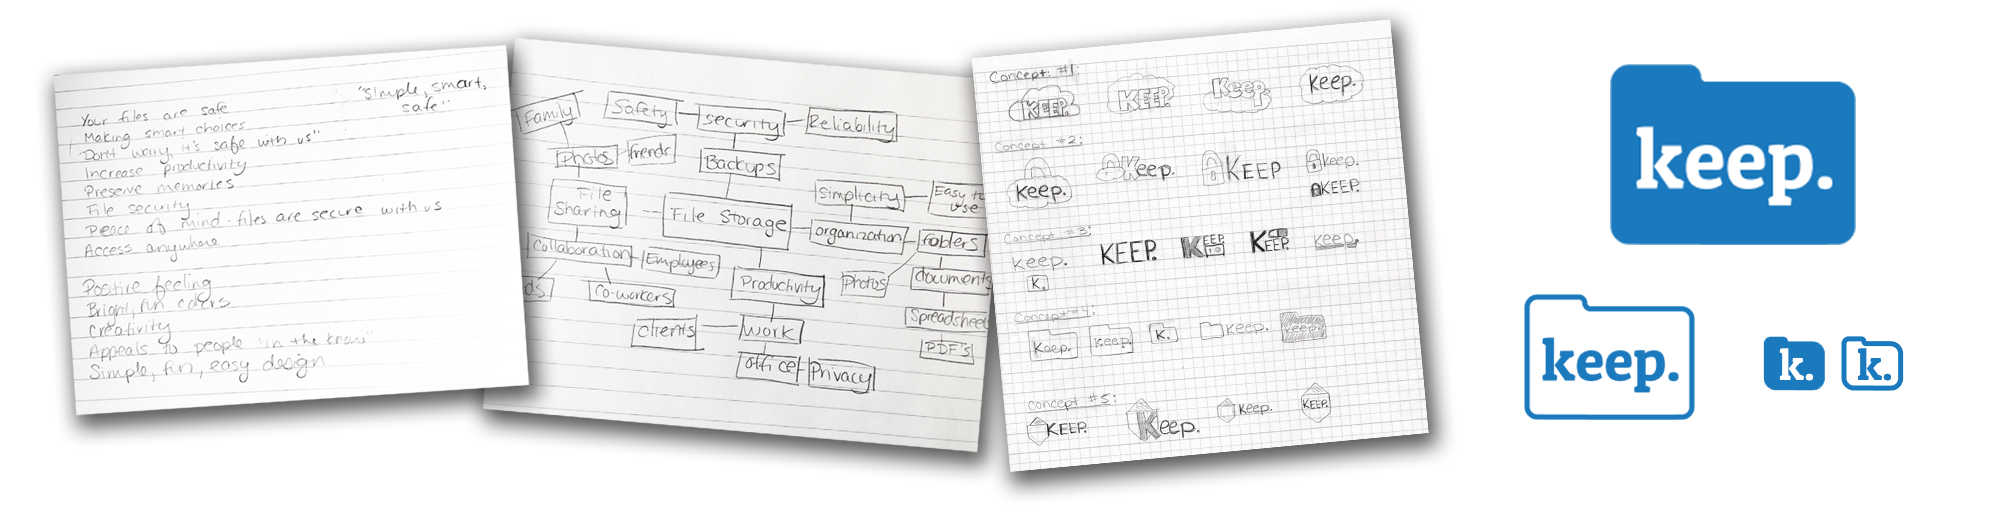 "simple, smart,
safe"
Your files are safe
Making smart choices
"Don't worry, it's safe with us"
Increase productivity
Preserve memories
File security
Peace of mind - files are secure with us
Access anywhere
Positive feeling
Bright, fun colors
Creativity
Appeals to people "in the know"
Simple, fun, easy design
Family
Safety
Security
Reliability
Photos
friends
Backups
File
Sharing
File Storage
Simplicity
Easy to
use
organization
folders
Collaboration
Employees
Photos
documents
ds
Co-workers
Productivity
Spreadsheet
clients
work
PDF's
office
Privacy
Concept #1:
KEEP.
KEEP.
Keep.
Keep.
Concept #2:
keep.
Keep.
KEEP
keep.
KEEP.
Concept #3:
keep.
KEEP.
KEEP
KEEP.
keep.
k.
Concept #4:
Keep.
keep.
k.
keep.
keep.
Concept #5:
KEEP.
Keep.
Keep.
KEEP.
keep.
keep.
k.
k.